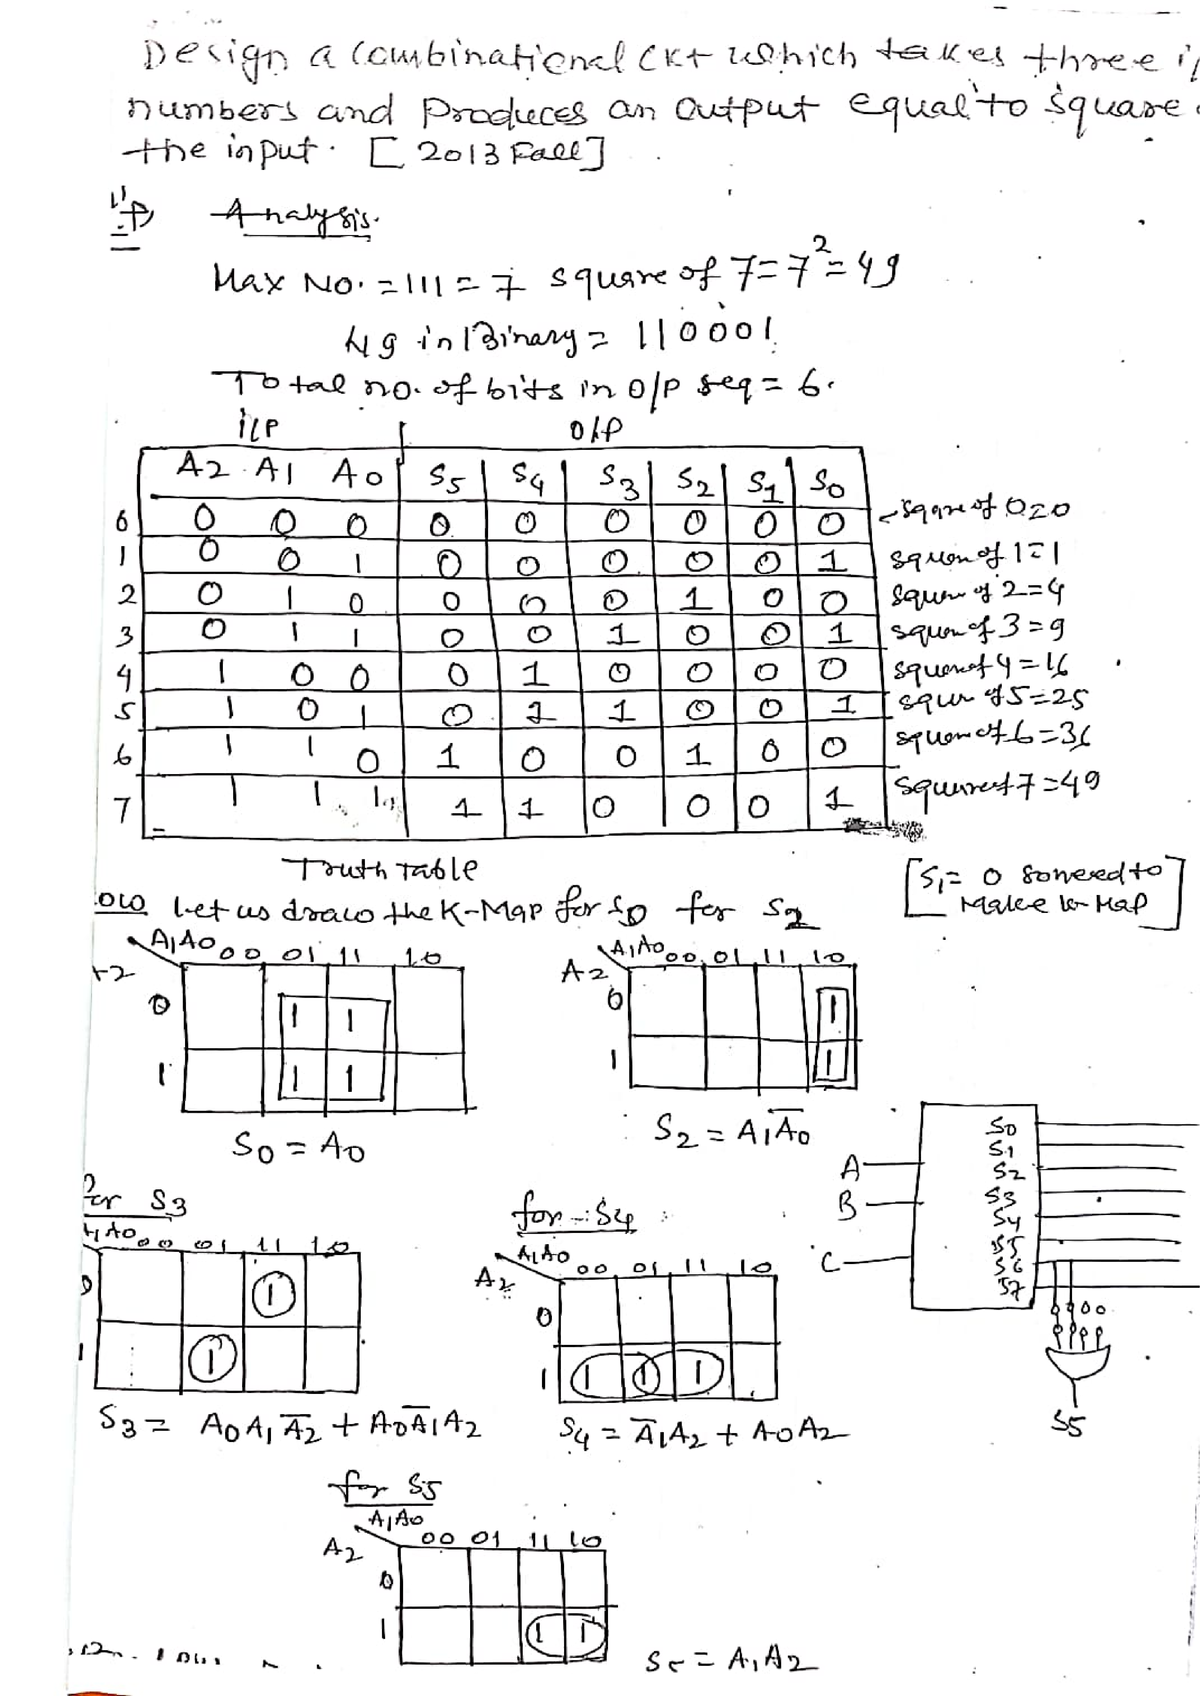 Design a combinational ckt which takes three i/
numbers and produces an output equal to square
the input. [2013 Fall]
Analysis.
Max No. = 111 = 7 square of 7 = 7² = 49
49 in Binary = 110001
Total no. of bits in o/p seq = 6.
i/p o/p
A2 A1 A0 S5 S4 S3 S2 S1 S0
0 0 0 0 0 0 0 0 0 0 square of 0=0
1 0 0 1 0 0 0 0 0 1 square of 1=1
2 0 1 0 0 0 0 1 0 0 square of 2=4
3 0 1 1 0 0 1 0 0 1 square of 3=9
4 1 0 0 0 1 0 0 0 0 square of 4=16
5 1 0 1 0 1 1 0 0 1 square of 5=25
6 1 1 0 1 0 0 1 0 0 square of 6=36
7 1 1 1 1 1 0 0 0 1 square of 7=49
Truth Table
[S1 = 0 so need to
Make k-Map]
Let us draw the K-Map for S0 for S2
A1A0 00 01 11 10
A2
0 1 1
1 1 1
S0 = A0
A1A0 00 01 11 10
A2
0 1
1 1
S2 = A1A̅0
For S3
A1A0 00 01 11 10
0 1
1 1
S3 = A0A1A̅2 + A0A̅1A2
for S4
A1A0 00 01 11 10
A2
0
1 1 1 1
S4 = A̅1A2 + A0A2
A
B
C
S0
S1
S2
S3
S4
S5
S6
S7
S5
for S5
A1A0
00 01 11 10
A2
0
1 1 1
S5 = A1A2